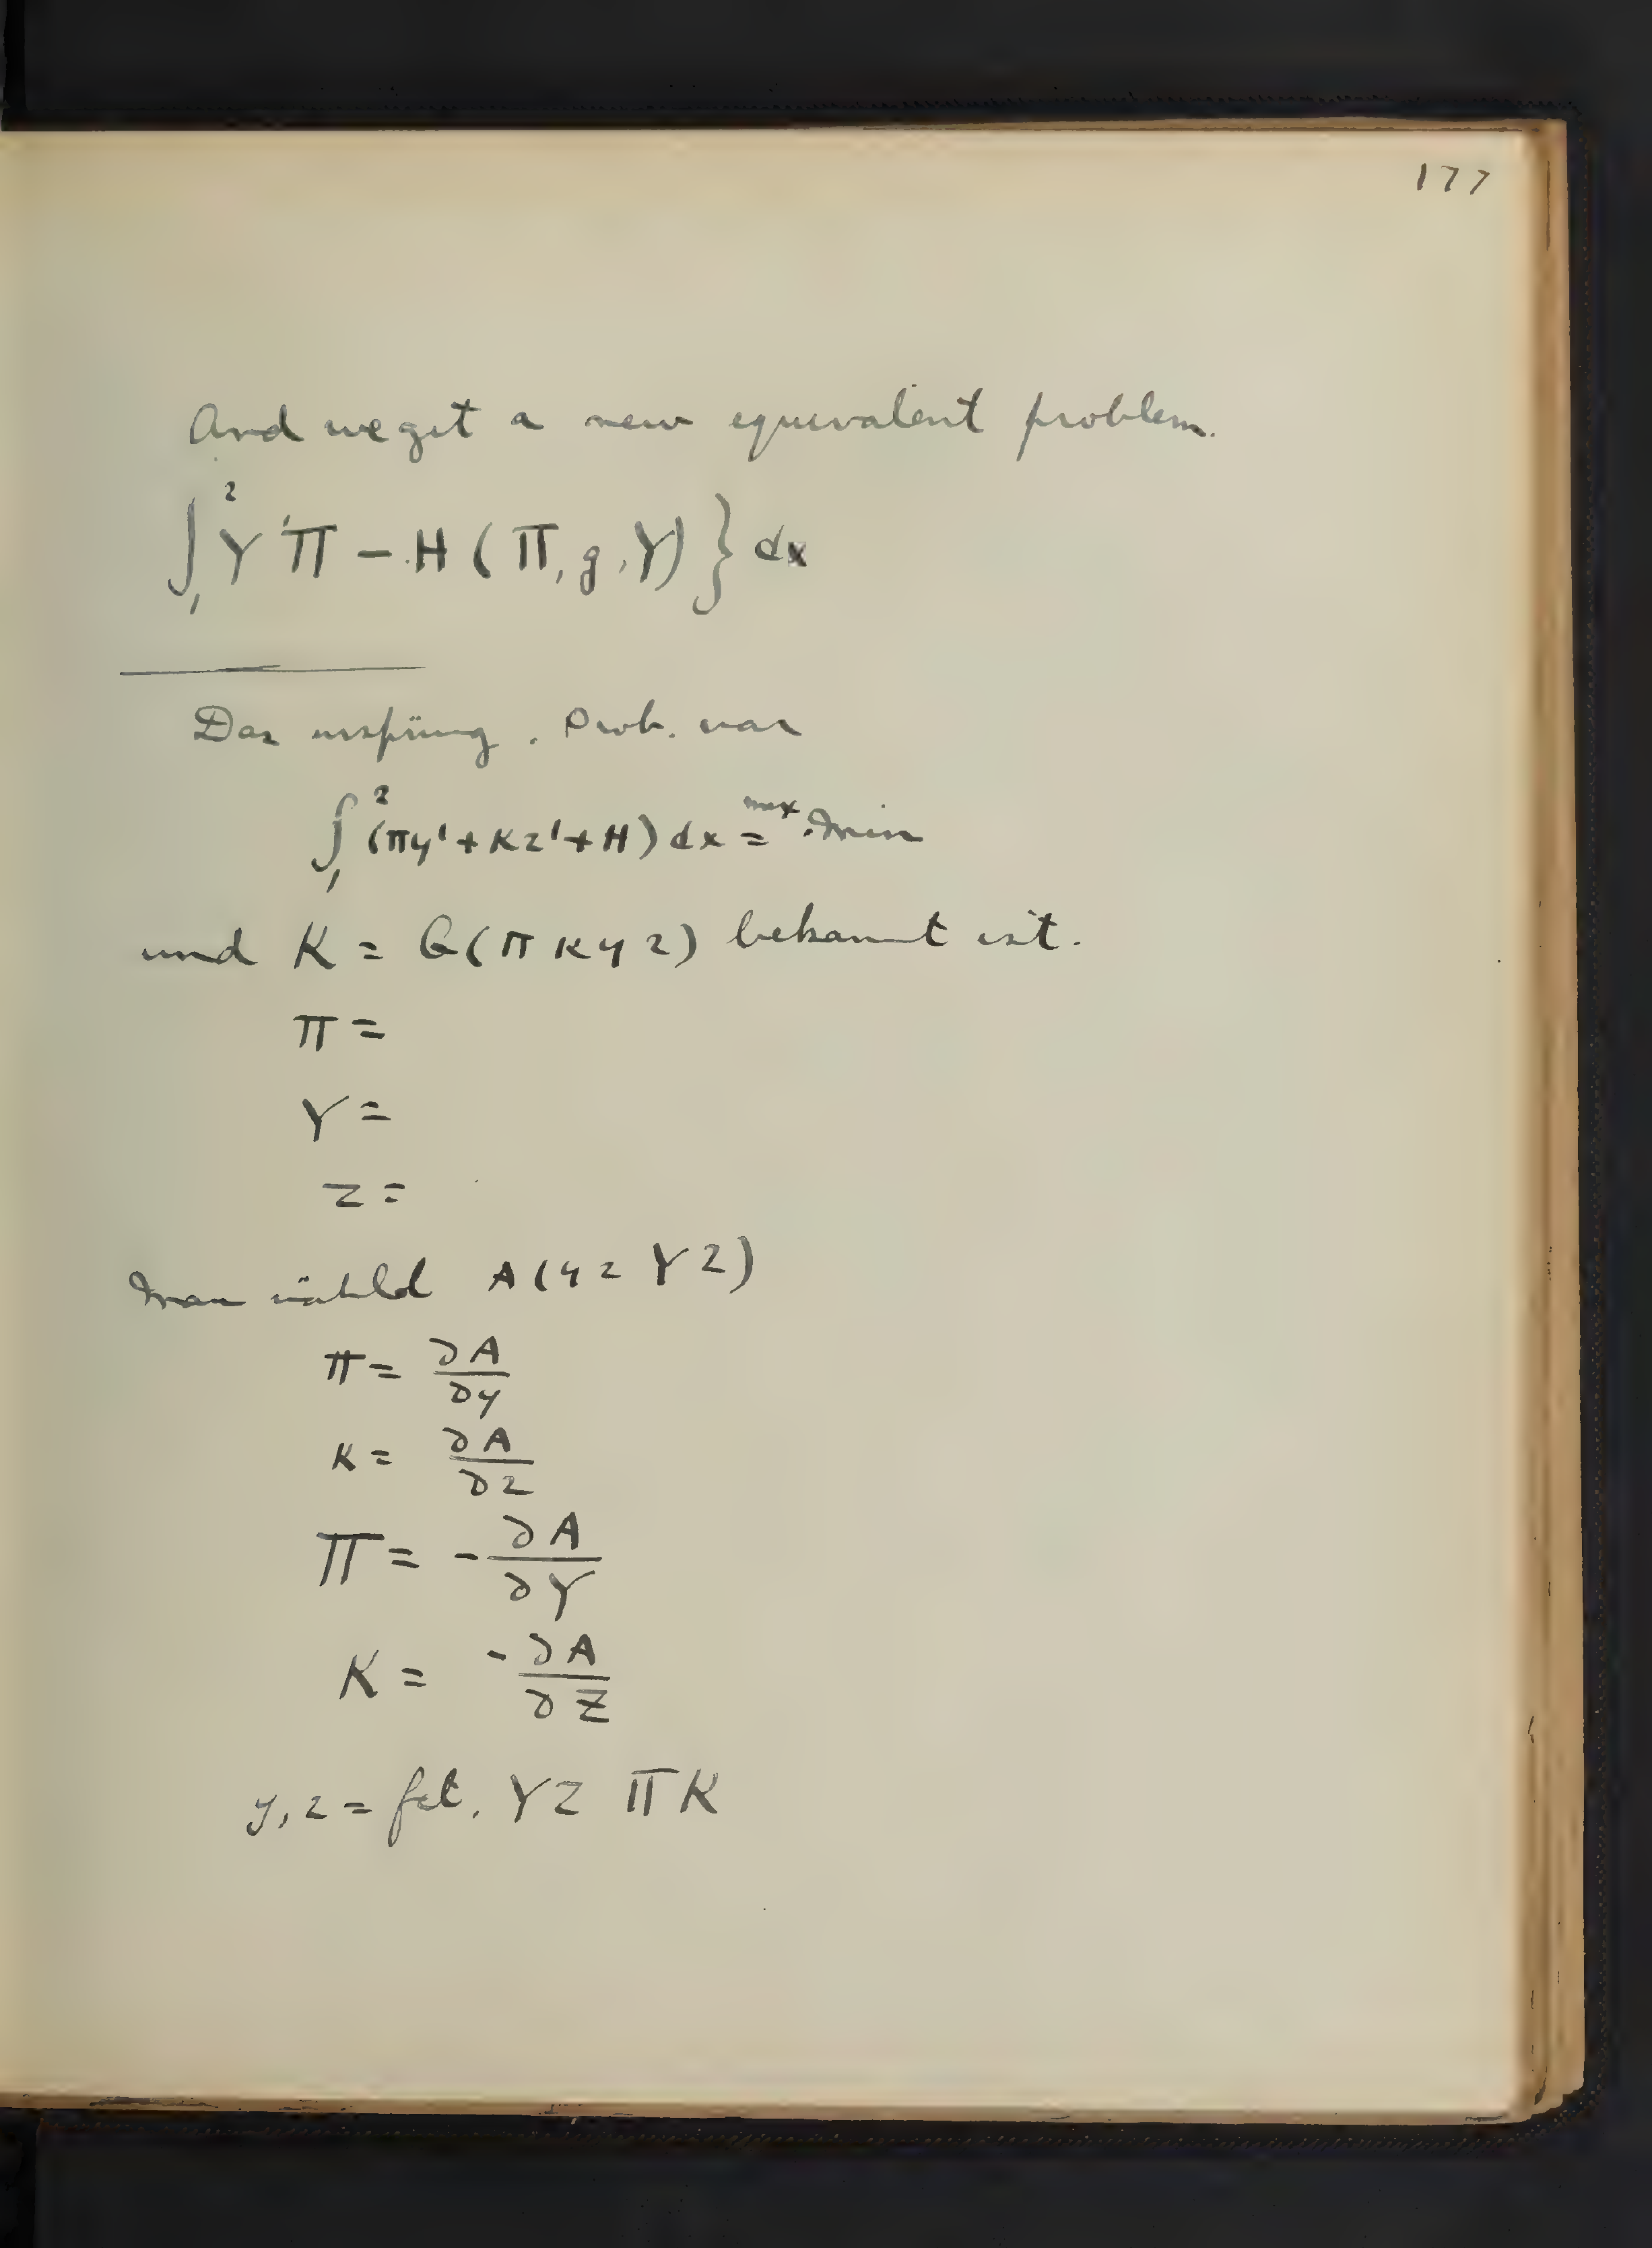 177
And we get a new equivalent problem.
∫₁² Y'Π − H(Π, y, Y)} dx
Das ursprüng. Prob. war
∫₁² (πy' + κz' + H) dx = max. min
und K = G(π κ y z) bekannt ist.
Π =
Y =
Z =
Man wähld A(y z Y Z)
π = ∂A/∂y
κ = ∂A/∂z
Π = -∂A/∂Y
K = -∂A/∂Z
y, z = fct. Y Z Π K